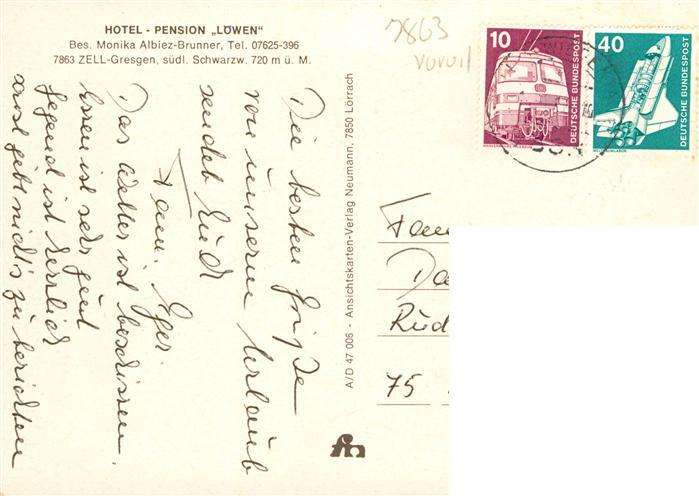 HOTEL - PENSION „LÖWEN“
Bes. Monika Albiez-Brunner, Tel. 07625-396
7863 ZELL-Gresgen, südl. Schwarzw. 720 m ü. M.
Die besten Grüße
von unserem Urlaub
sendet Euch
Fam. Eger
Das Wetter ist beschissen.
Essen ist sehr gut
Gegend ist herrlich
sonst gibt nichts zu berichten
A/D 47 006 - Ansichtskarten-Verlag Neumann, 7850 Lörrach
7863
10
DEUTSCHE BUNDESPOST
40
DEUTSCHE BUNDESPOST
Fam
Da
Rüd
75